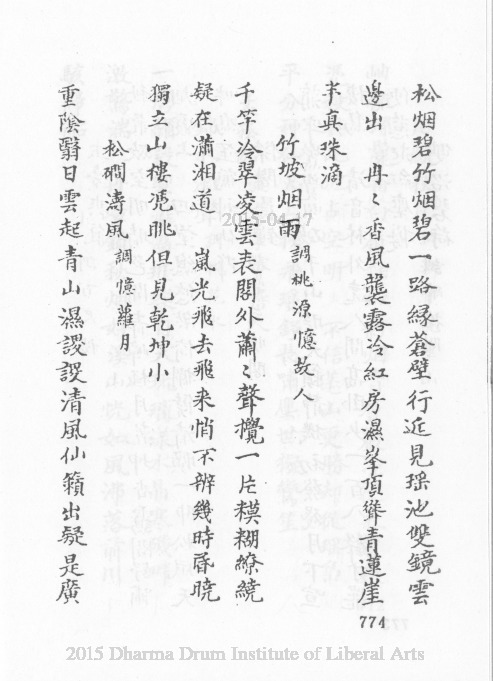 松烟碧竹烟碧一路緣蒼壁行近見瑶池雙鏡雲
邊出　冉〻香風襲露冷紅房濕峯頂聳青蓮崖
半真珠滴
竹坡烟雨 調桃源憶故人
千竿冷翠凌雲表閣外蕭〻聲攪一片糢糊繚繞
疑在瀟湘道　嵐光飛去飛来悄不辨幾時昏曉
獨立山樓凭眺但見乾坤小
松磵濤風 調憶蘿月
重陰翳日雲起青山濕謖謖清風仙籟出疑是廣
774
2015-04-17
2015 Dharma Drum Institute of Liberal Arts